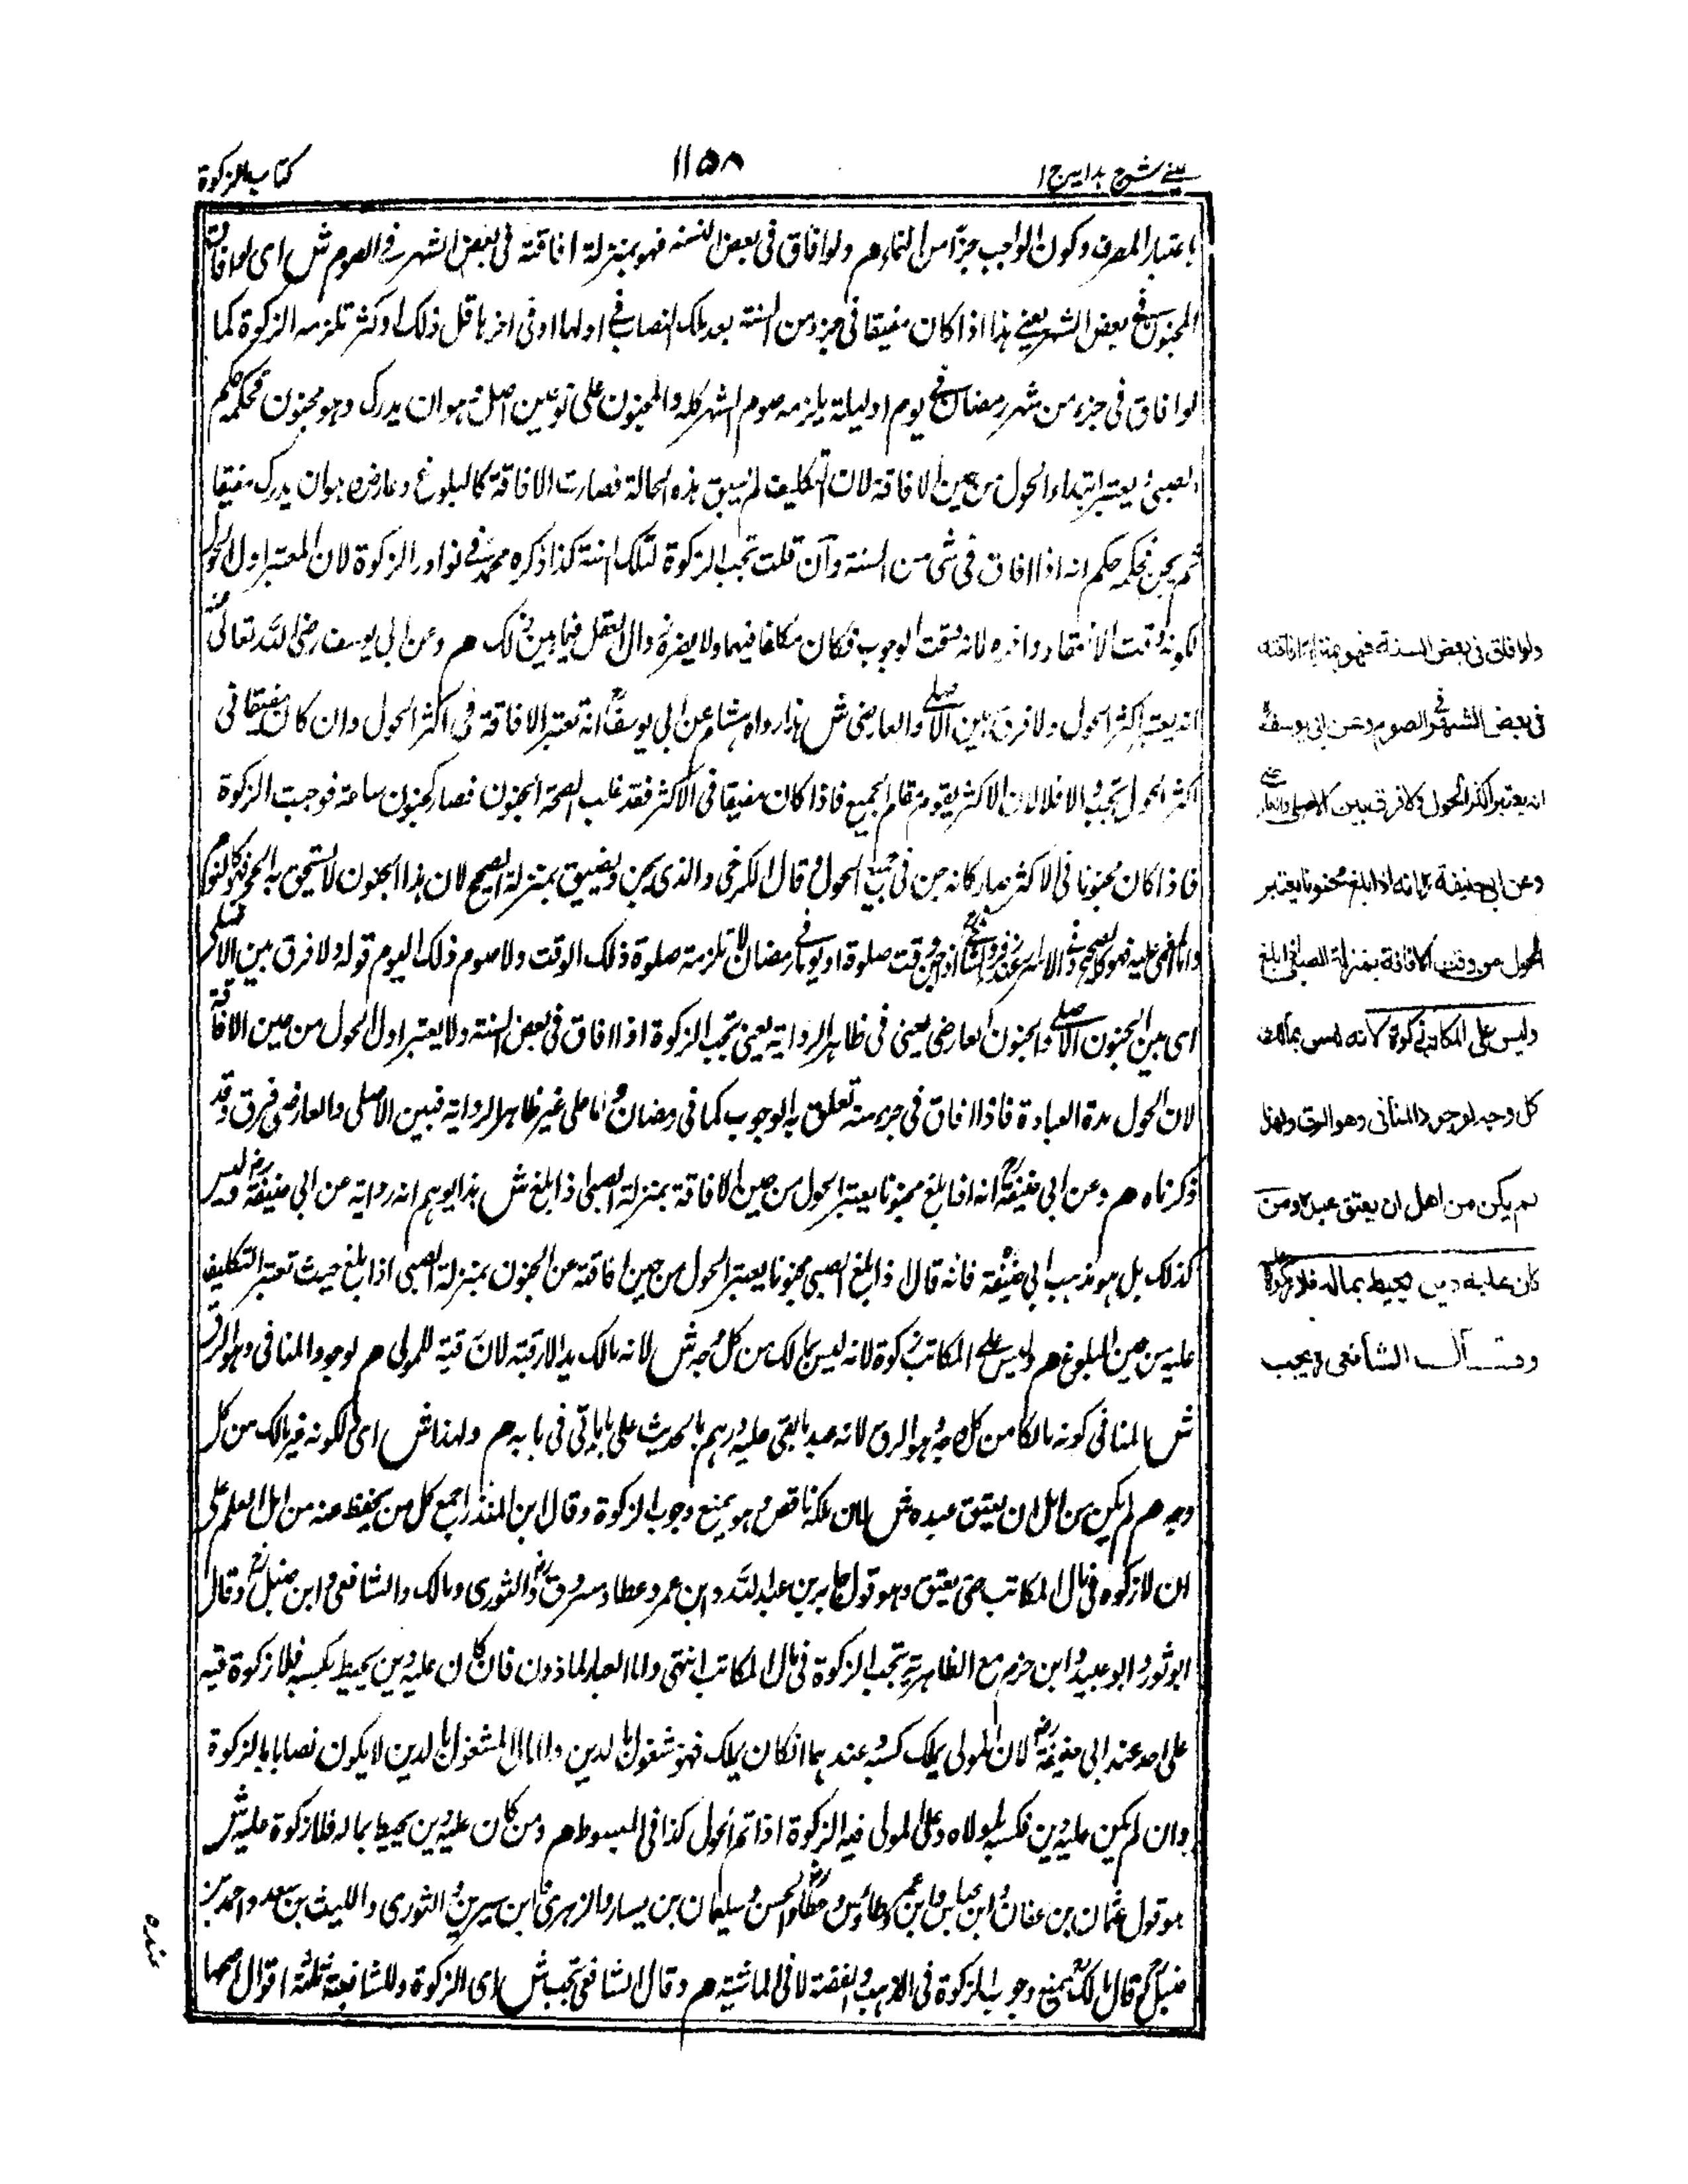 عینے شرح ہدایہ ج ۱
۱۱۵۸
کتاب الزکوة
باعتبار المصرف وکون الواجب جزأ من النماء هم ولو افاق فی بعض السنه فهو بمنزلة افاقته فی بعض الشهر فی الصوم ش ای لو افاق
المجنون فی بعض الشهر یعنے هذا اذا کان مفیقا فی جزء من السنة بعد ملک النصاب فے اولها او فی اخرها قل ذلک او کثر تلزمه الزکوة کما
لو افاق فی جزء من شهر رمضان فی یوم او لیلة یلزمه صوم الشهر کله والمجنون علی نوعین اصلی هو ان یدرک وهو مجنون فحکمه حکم
الصبی یعتبر ابتداء الحول من حین الافاقة لان التکلیف لم یسبق هذه الحالة فصارت الافاقة کالبلوغ وعارض هو ان یدرک مفیقا
ثم یجن فحکمه حکم انه اذا افاق فی شئ من السنة وان قلت تجب الزکوة لتلک السنة کذا ذکره محمد فے نوادر الزکوة لان المعتبر اول الحول
لکونه وقت الانعقاد واخره لانه وقت الوجوب فکان مکلفا فیهما ولا یضره زوال العقل فیما بین ذلک هم وعن ابی یوسف رضی الله تعالی عنه
انه یعتبر اکثر الحول ولا فرق بین الاصلے والعارضی ش هذا رواه هشام عن ابی یوسف انه تعتبر الافاقة فی اکثر الحول وان کان مفیقا فی
اکثر الحول تجب والا فلا لان الاکثر یقوم مقام الجمیع فاذا کان مفیقا فی الاکثر فقد غلب الصحة الجنون فصار کجنون ساعة فوجبت الزکوة
فاذا کان مجنونا فی الاکثر صار کانه جن فی جمیع الحول وقال الکرخی والذی یجن ویفیق بمنزلة الصحیح لان هذا الجنون لا یستحق به الحجر فهو کالنوم
والمغمی علیه فهو کالصحیح وقت صلوة او یوما من رمضان لا تلزمه صلوة ذلک الوقت ولا صوم ذلک الیوم قوله ولا فرق بین الاصلی
ای بین الجنون الاصلے والجنون العارضی یعنی فی ظاهر الروایة یعنی تجب الزکوة اذا افاق فی بعض السنة ولا یعتبر اول الحول من حین الافاقة
لان الحول مدة العبادة فاذا افاق فی جزء منه تعلق به الوجوب کما فی رمضان واما علی غیر ظاهر الروایة فبین الاصلی والعارضی فرق وقد
ذکرناه هم وعن ابی حنیفة انه اذا بلغ مجنونا یعتبر الحول من حین الافاقة بمنزلة الصبی اذا بلغ ش هذا یوهم انه روایة عن ابی حنیفة ولیس
کذلک بل هو مذهب ابی حنیفة فانه قال اذا بلغ الصبی مجنونا یعتبر الحول من حین افاقته عن الجنون بمنزلة الصبی اذا بلغ حیث تعتبر التکلیف
علیه من حین البلوغ هم ولیس علے المکاتب زکوة لانه لیس بمالک من کل وجه ش لانه مالک یدا لا رقبة لان رقبته للمولی هم لوجود المنافی وهو الرق
ش المنافی کونه مالکا من کل وجه هو الرق لانه عبد ما بقی علیه درهم بالحدیث علی ما یاتی فی بابه هم ولهذا ش ای لکونه غیر مالک من کل
وجه هم لم یکن من اهل ان یعتق عبده ش لان ملکه ناقص وهو یمنع وجوب الزکوة وقال ابن المنذر اجمع کل من یحفظ عنه من اهل العلم علی
ان لا زکوة فی مال المکاتب حتی یعتق وهو قول جابر بن عبد الله وابن عمر وعطاء ومسروق والثوری ومالک والشافعی وابن حنبل وقال
ابو ثور وابو عبید وابن حزم مع الظاهریة تجب الزکوة فی مال المکاتب انتهی واما العبد الماذون فان کان علیه دین یحیط بکسبه فلا زکوة فیه
علی احد عند ابی حنیفة لان المولی یملک کسبه عندهما وان کان یملک فهو مشغول بالدین والمال المشغول بالدین لا یکون نصابا بالزکوة
وان لم یکن علیه دین فکسبه لمولاه وعلی المولی فیه الزکوة اذا تم الحول کذا فی المبسوط هم ومن کان علیه دین یحیط بماله فلا زکوة علیه ش
هو قول عثمان بن عفان وابن عباس وابن عمر وطاؤس وعطاء والحسن وسلیمان بن یسار والزهری وابن سیرین والثوری واللیث بن سعد واحمد بن
حنبل وقال مالک یمنع وجوب الزکوة فی الذهب والفضة لا فی الماشیة هم وقال الشافعی تجب ش ای الزکوة وللشافعیة ثلثة اقوال اصحها
عنده
ولو افاق فی بعض السنة فهو بمنزلة افاقته
فی بعض الشهر فی الصوم وعن ابی یوسف
انه یعتبر اکثر الحول ولا فرق بین الاصلی والعارضی
وعن ابی حنیفة انه اذا بلغ مجنونا یعتبر
الحول من وقت الافاقة بمنزلة الصبی اذا بلغ
ولیس علی المکاتب زکوة لانه لیس بمالک
کل وجه لوجود المنافی وهو الرق ولهذا
لم یکن من اهل ان یعتق عبده ومن
کان علیه دین یحیط بماله فلا زکوة علیه
وقال الشافعی تجب